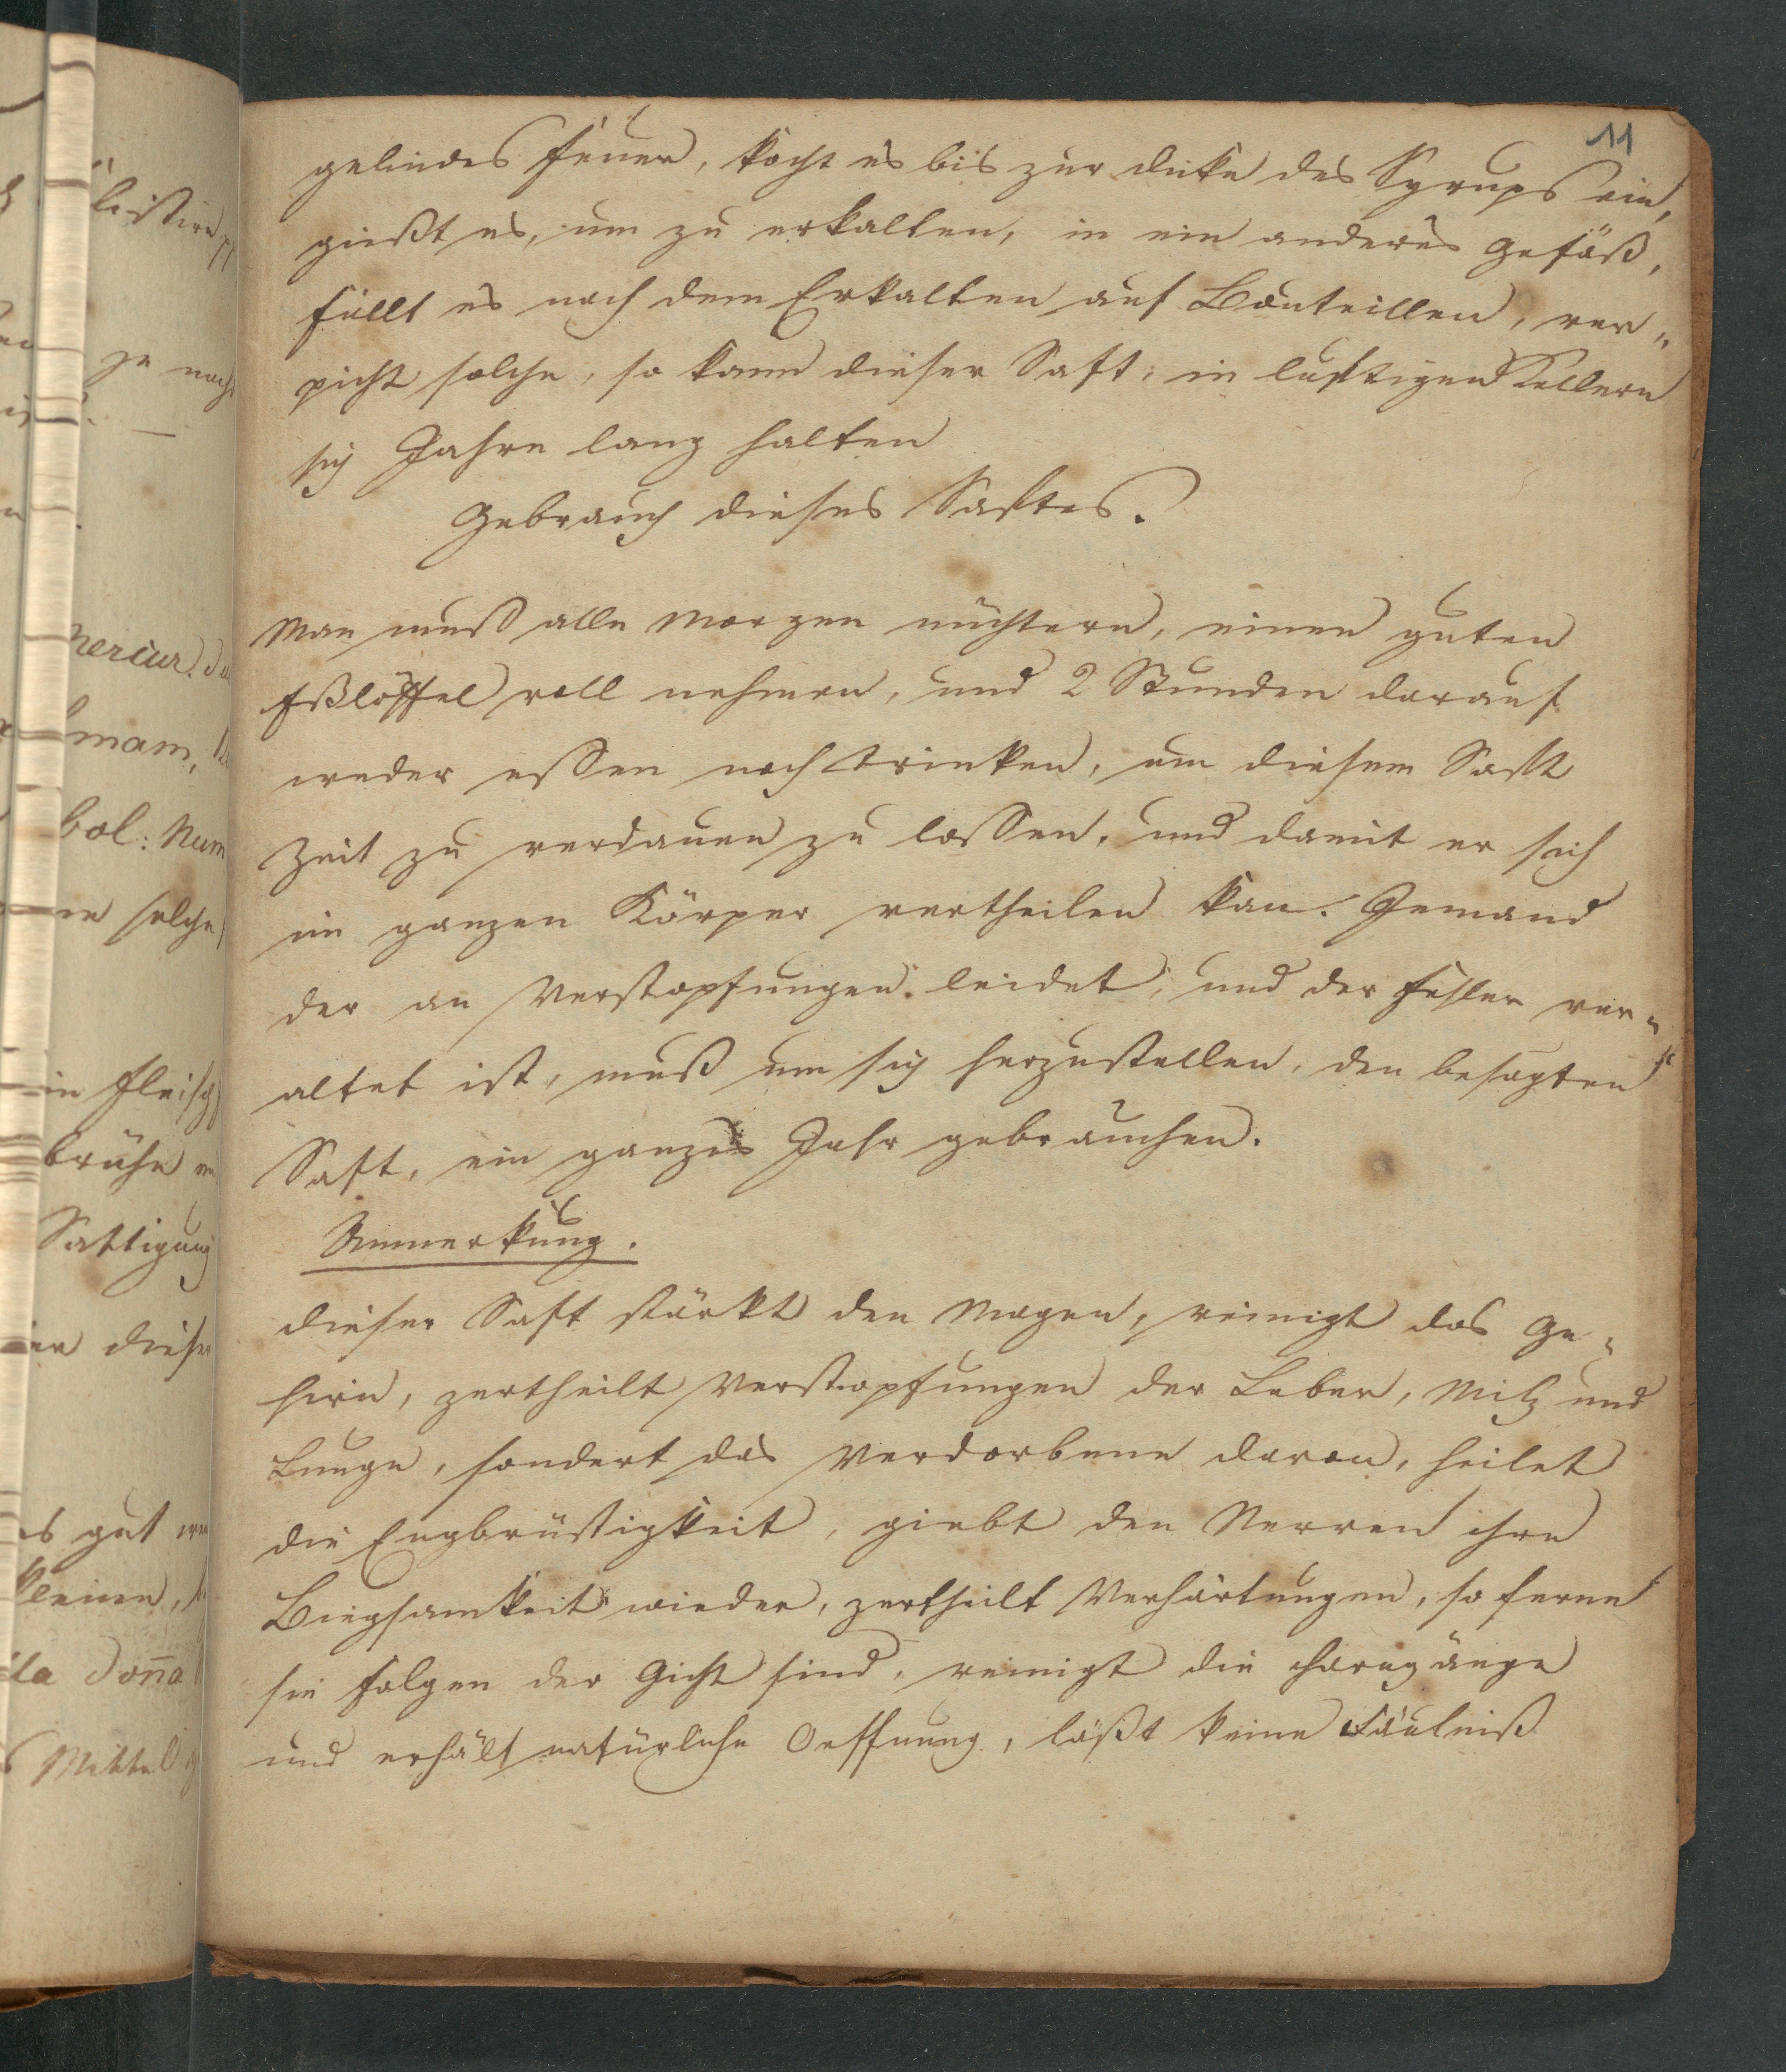 11
gelindes Feuer, kocht es bis zur dicke des Syrups ein,
gießt es, um zu erkalten, in ein anderes Gefäß,
füllt es nach dem Erkalten auf Bouteillen, ver„
picht solche, so kann dieser Saft, in luftigen Kellern
sich Jahre lang halten
Gebrauch dieses Saftes.
Man muß alle Morgen nüchtern, einen guten
Eßlöffel voll nehmen, und 2 Stunden darauf
weder essen noch trinken, um diesem Saft
Zeit zu verdauen zu lassen, und damit er sich
im ganzen Körper vertheilen kan. Jemand
der an Verstopfungen leidet, und der Fehler ver„
altet ist, muß um sich herzustellen, den besagten
Saft, ein ganzes Jahr gebrauchen.
Anmerkung.
dieser Saft stärkt den Magen, reinigt das Ge„
hirn, zertheilt Verstopfungen der Leber, Milz und
Lunge, sondert das Verdorbene davon, heilet
die Engbrüstigkeit, giebt den Nerven ihre
Biegsamkeit wieder, zertheilt Verhärtungen, so ferne
sie Folgen der Gicht sind, reinigt die Harngänge
und erhält natürliche Oeffnung, läßt keine Fäulniß
Mercur.
mam,
bol: Num
solche
in Fleisch
brühe
Sattigung
diese
es gut
kleinen,
donna
Mittel